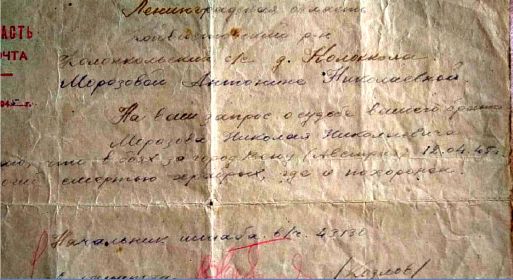 Ленинградская область
р-он
Колоккольский с/с д. Колоккола
Морозовой Антонине Николаевной.
АСТЬ
ОЧТА
На ваш запрос о судьбе вашего брата
Морозова Николая Николаевича
что в боях за город Вену (Австрия) 12.04.45 г.
смертью храбрых, где и похоронен.
Начальник штаба в/ч. 43130
(Козлов)